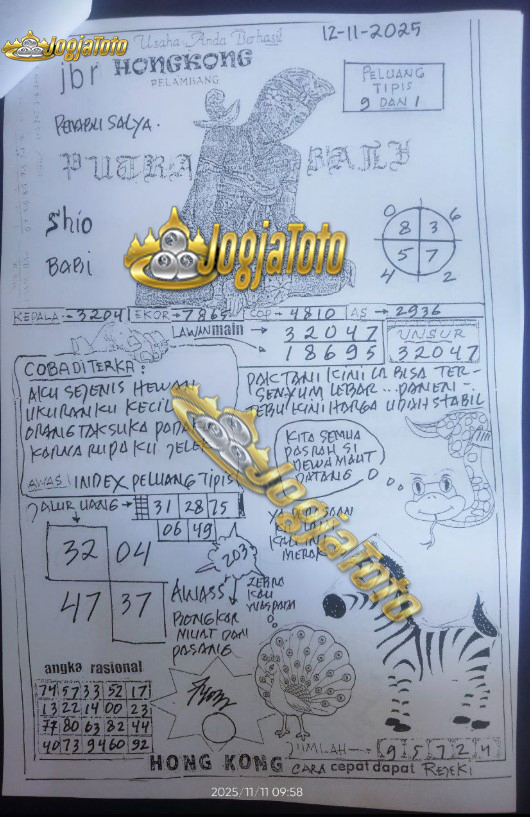 JogjaToto
Usaha Anda Berhasil
12-11-2025
jbr HONGKONG
PELAMBANG
PELUANG
TIPIS
9 DAN 1
PENABUI SALYA.
PUTRA BALI
Shio
BABI
0 6
8 3
5 7
4 2
JogjaToto
KEPALA:→3204 EKOR→7865 COP→4810 AS→2936
LAWAN main → 32047
18695
UNSUR
32047
COBA DITERKA:
AKU SEJENIS HEWAN
UKURANKU KECIL
ORANG TAK SUKA PADA
KARNA RUPA KU JELEK
AWAS INDEX PELUANG TIPIS
PAK TANI KINI BISA TER-
SENYUM LEBAR...PANEN
TEBU KINI HARGA UDAH STABIL
KITA SEMUA
PASRAH SI
DEWA MAUT
DATANG
JALUR UANG → 31 28 75
06 49
32 04
47 37
2037
JogjaToto
KALI INI
MERAK
AWASS
BONGKAR
MUAT DAN
PASANG
ZEBRA
KAU
WASPADA
angka rasional
74 57 33 52 17
13 22 14 00 23
77 80 63 82 44
40 73 94 60 92
JUMLAH → 9 5 7 2 4
HONG KONG CARA cepat dapat REJEKI
2025/11/11 09:58